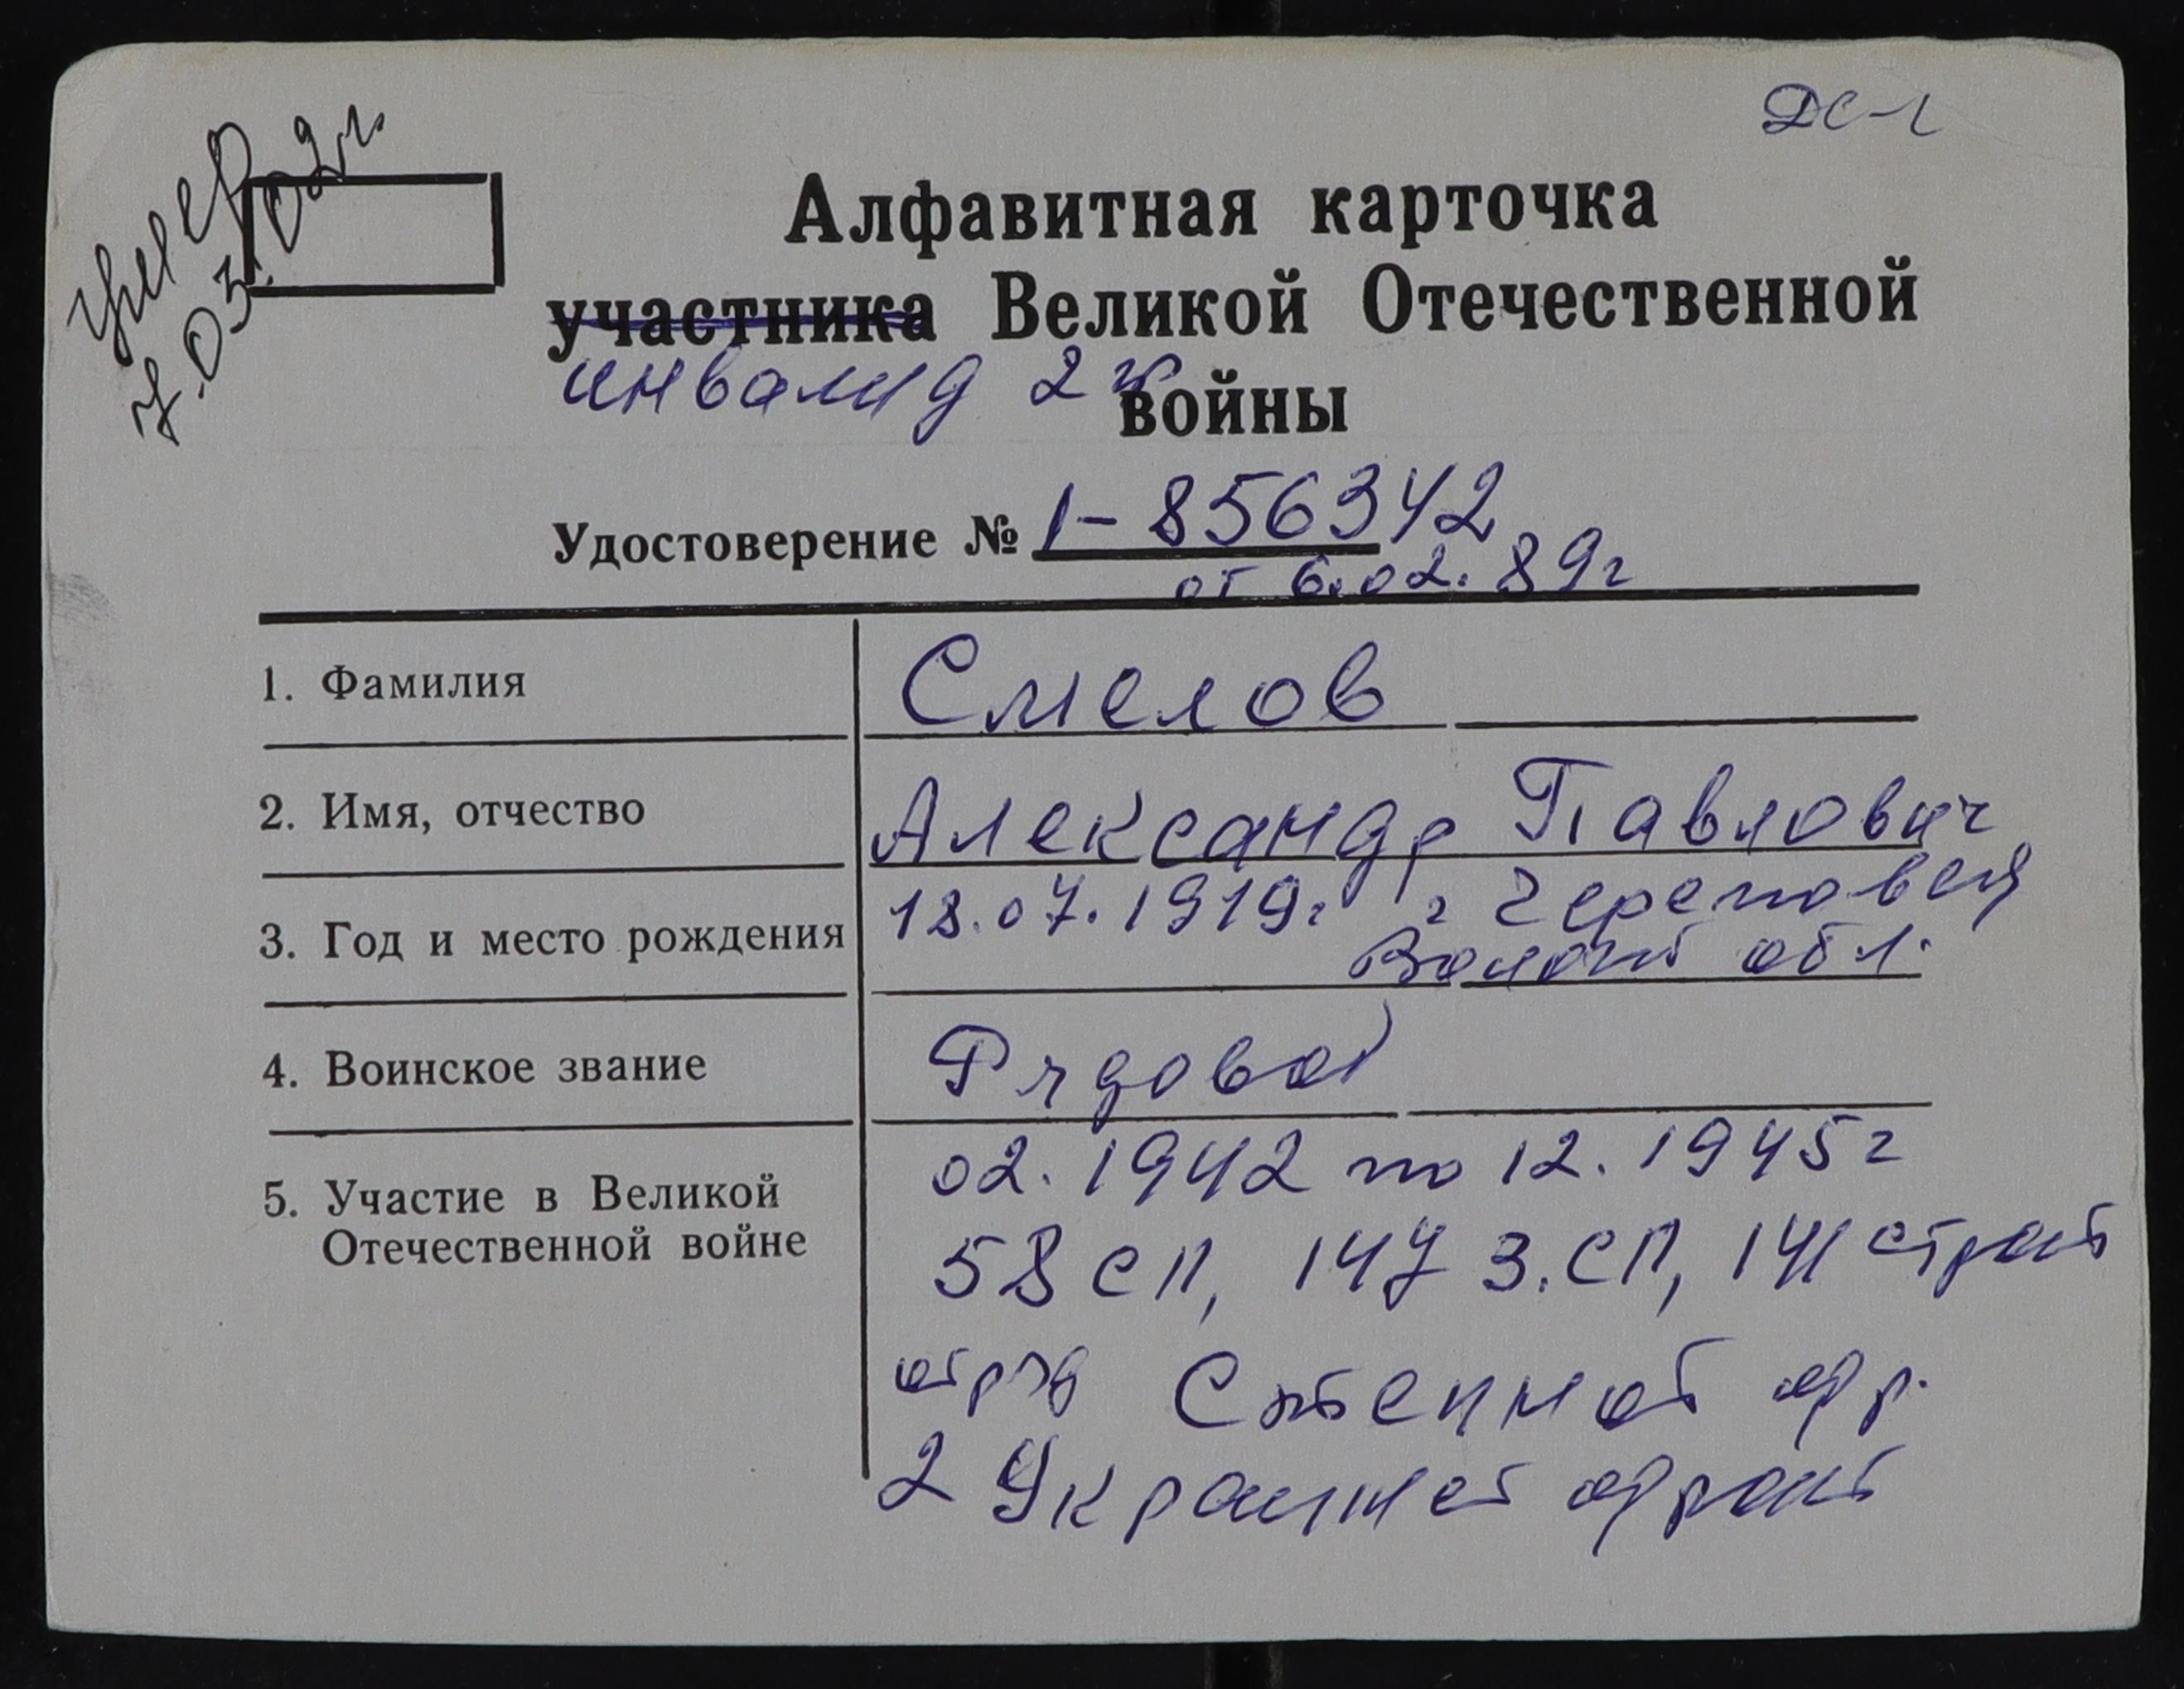 ДС-1
умер
7.03.02г.
Алфавитная карточка
участника Великой Отечественной
инвалид 2 гр
войны
Удостоверение № 1-856342
от 6.02.89г
1. Фамилия
Смелов
2. Имя, отчество
Александр Павлович
3. Год и место рождения
18.07.1919г г Череповец
Волог обл.
4. Воинское звание
Рядовой
5. Участие в Великой
Отечественной войне
02.1942 по 12.1945г
58 СП, 147 З.СП, 141 строит
отряд Степной фр.
2 Украинс фронт